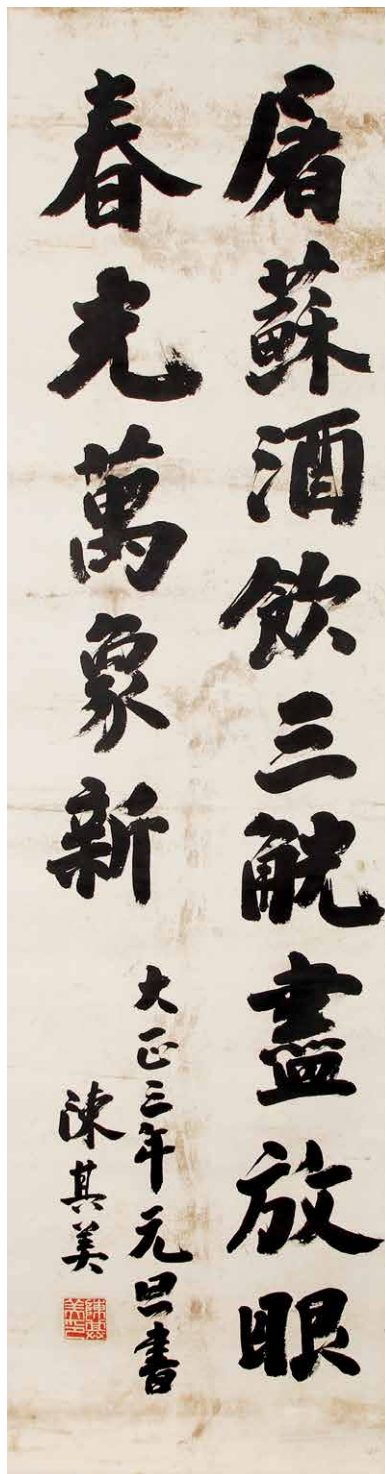 屠蘇酒飲三觥盡放眼
春光萬象新
大正三年元旦書
陳其美
陳其美印